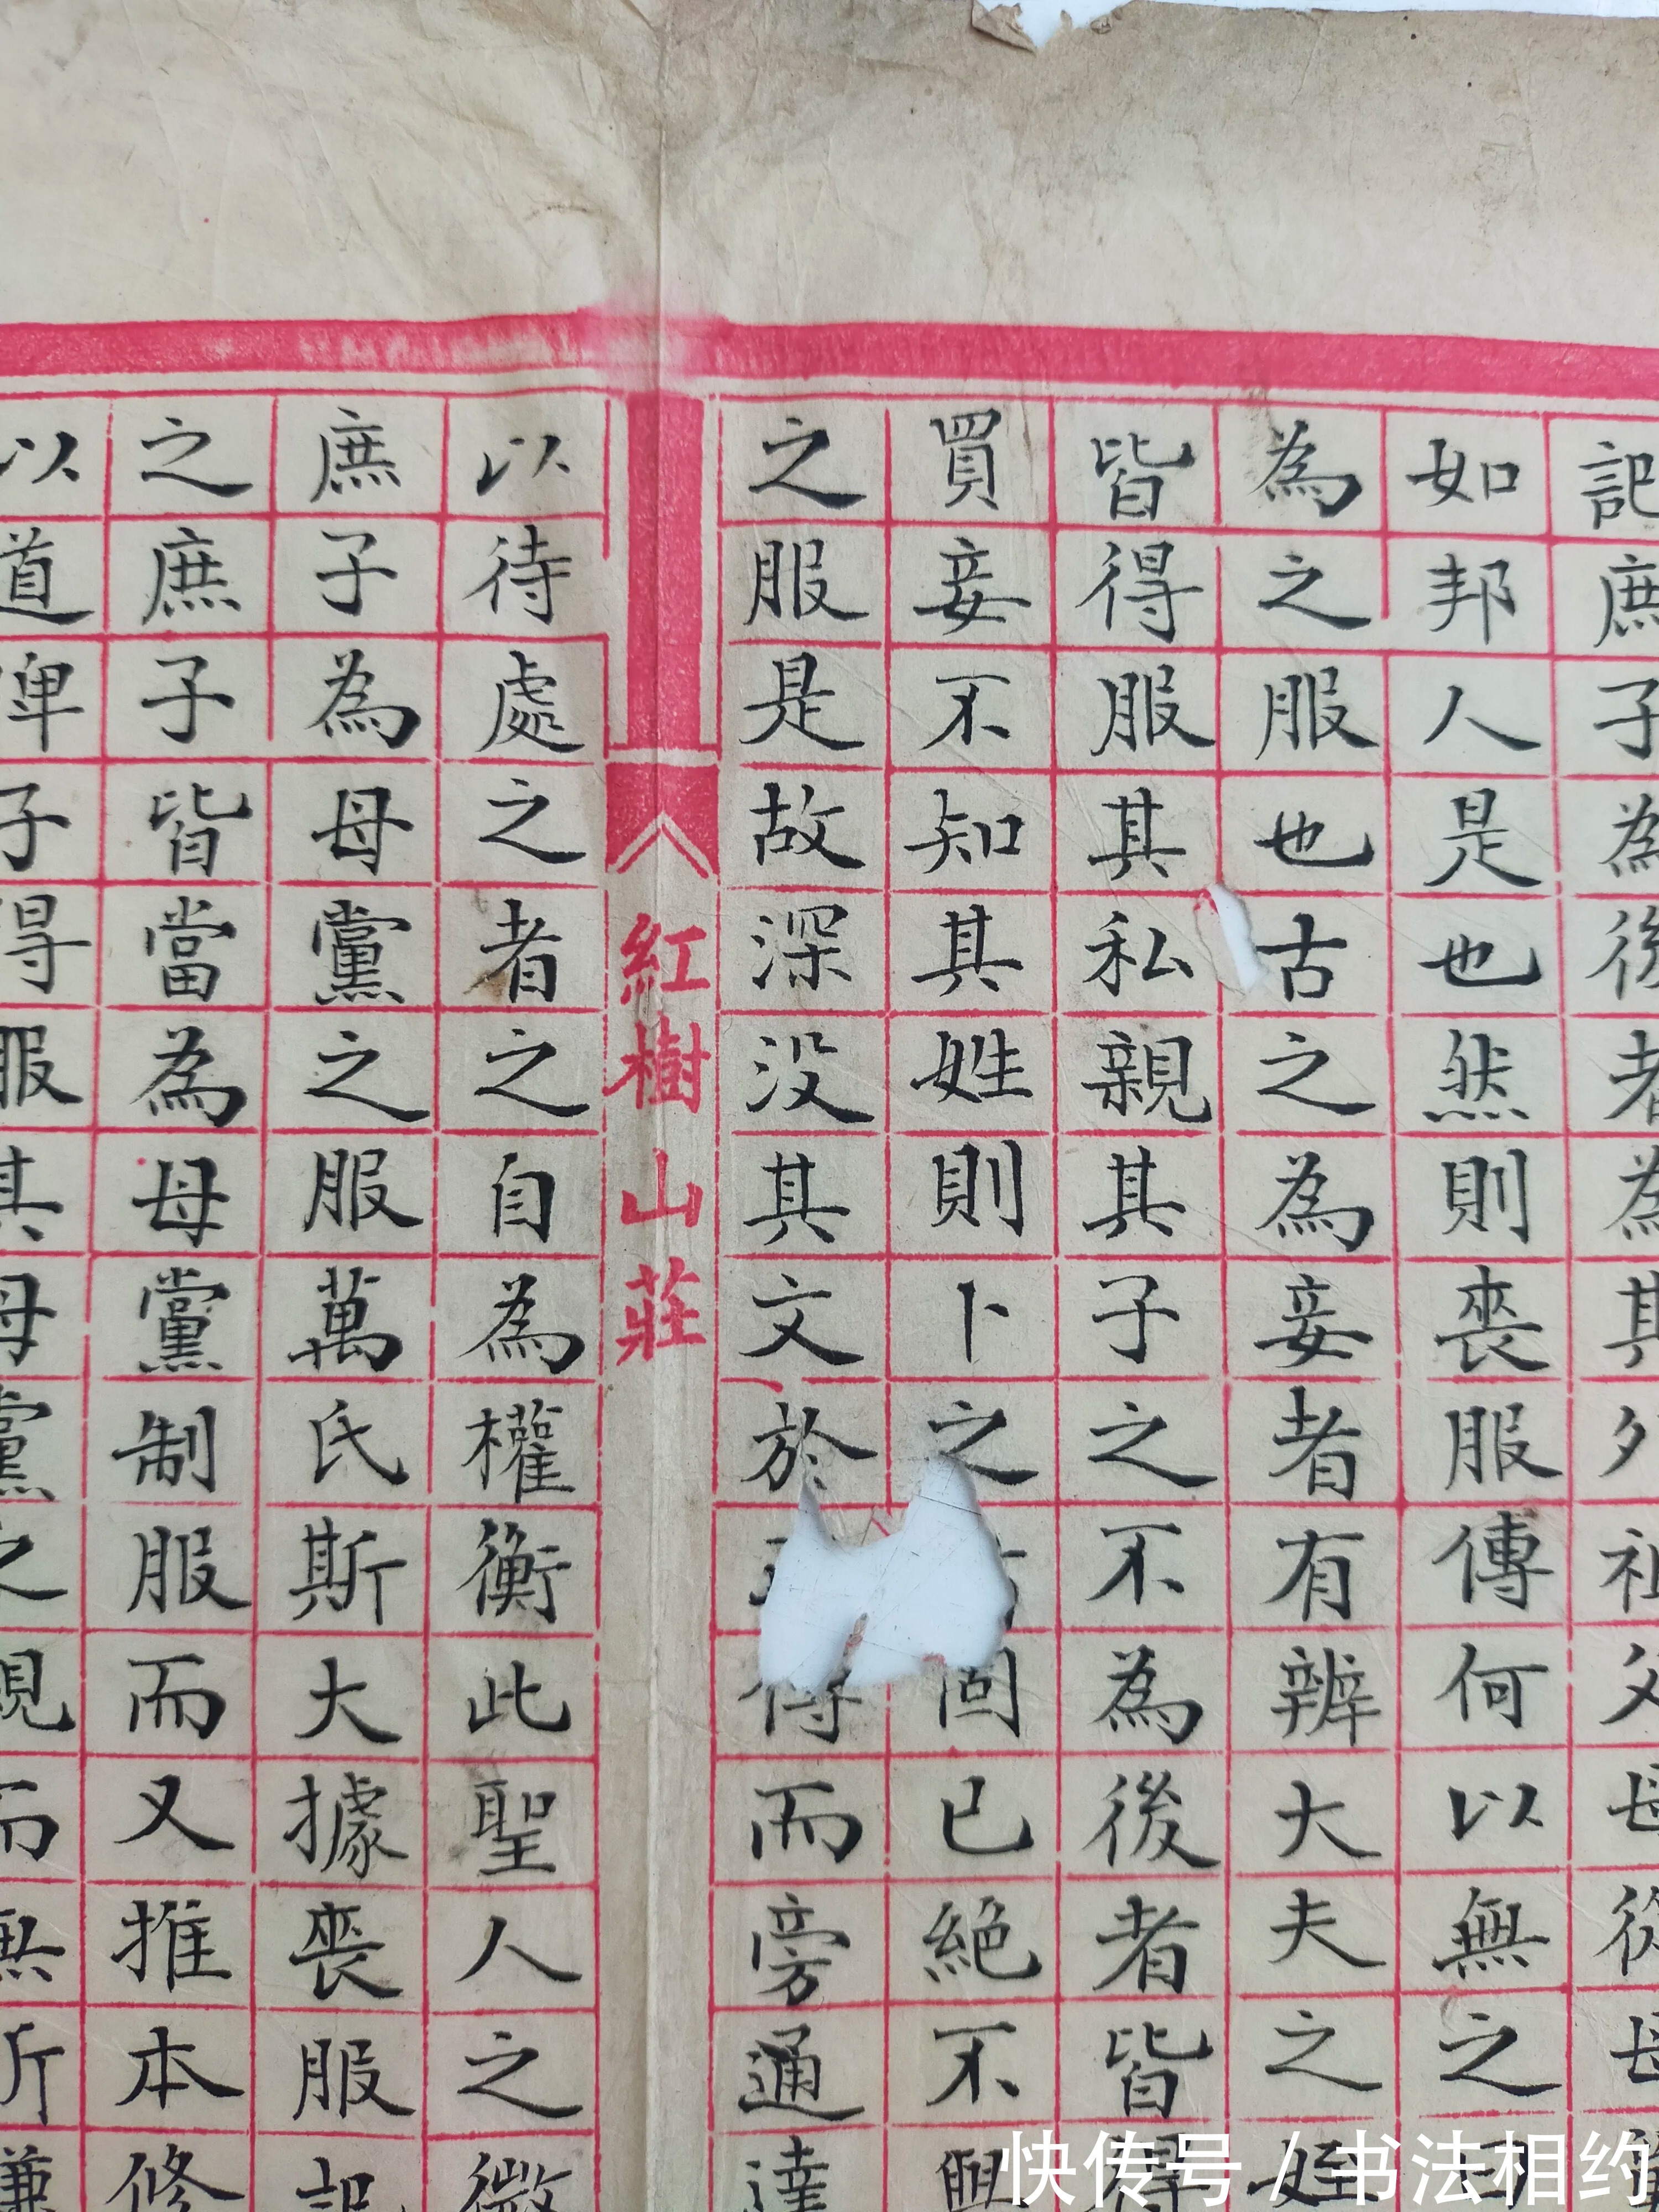 記庶子為後者為其外祖父母從母
如邦人是也然則喪服傳何以無之曰
為之服也古之為妾者有辨大夫之姪
皆得服其私親其子之不為後者皆得
買妾不知其姓則卜之固已絕不與
之服是故深没其文於傳而旁通達
紅樹山莊
以待處之者之自為權衡此聖人之微
庶子為母黨之服萬氏斯大據喪服記
之庶子皆當為母黨制服而又推本修
以道俾子得服其母黨之親而無斯嫌
快传号/书法相约